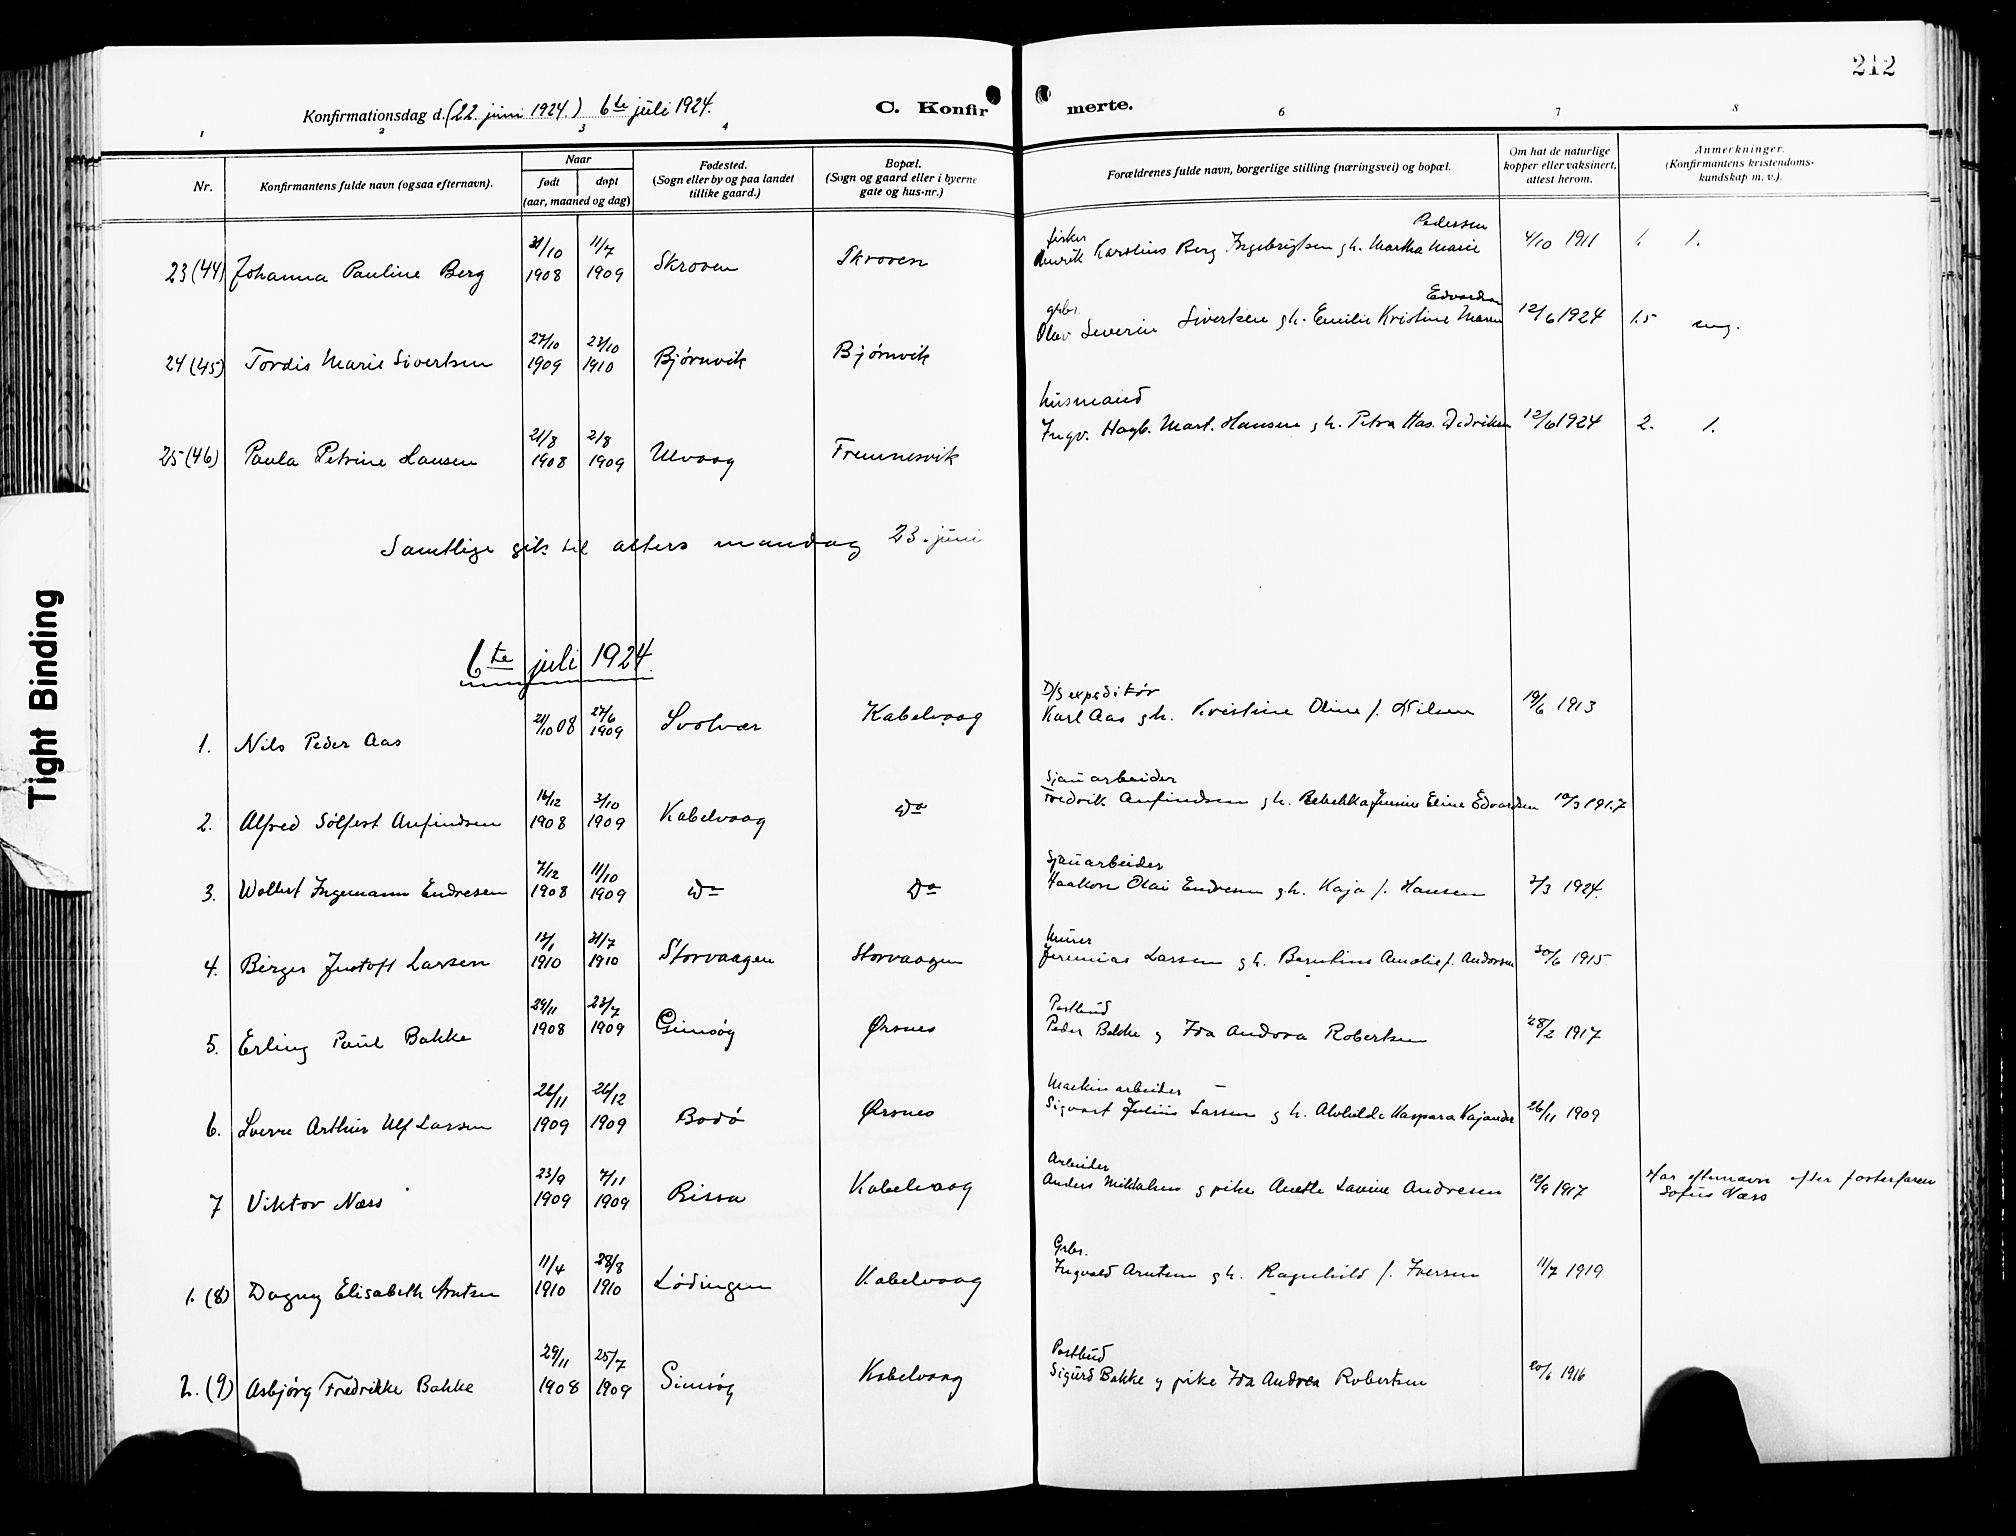 212
Konfirmationsdag d. (22. juni 1924.) 6te juli 1924.
C. Konfirmerte.
1 2 3 4 6 7 8
Nr.
Konfirmantens fulde navn (ogsaa efternavn).
Naar
født døpt
(aar, maaned og dag)
Fødested.
(Sogn eller by og paa landet
tillike gaard.)
Bopæl.
(Sogn og gaard eller i byerne
gate og hus-nr.)
Forældrenes fulde navn, borgerlige stilling (næringsvei) og bopæl.
Om hat de naturlige
kopper eller vaksinert,
attest herom.
Anmerkninger.
(Konfirmantens kristendoms-
kundskap m. v.).
Pedersen
fisker
31/10 11/7
23 (44) Johanna Pauline Berg 1908 1909 Skroven Skroven Henrik Karstius Berg Ingebrigtsen g h. Martha Marie 4/10 1911 1. 1.
Edvardsen
grbr.
27/10 23/10
24 (45) Tordis Marie Sivertsen 1909 1910 Bjørnvik Bjørnvik Olav Severin Sivertsen g h. Emilie Kristine Maren 12/6 1924 1.5 mg.
husmand
21/8 2/8
25 (46) Paula Petrine Hansen 1908 1909 Ulvaag Fremnesvik Ingv. Hagb. Mart. Hansen g h. Petra Has. Didriksen 12/6 1924 2. 1.
Samtlige gik til alters mandag 23. juni
6te juli 1924.
D/S expeditør
1. Nils Peder Aas 21/10 08 27/6 1909 Svolvær Kabelvaag Karl Aas g h. Kristine Oline f. Nilsen 19/6 1913
Sjauarbeider
16/12 3/10
2. Alfred Sølfest Anfindsen 1908 1909 Kabelvaag Do Fredrik Anfindsen g h. Rebekka Jensine Eline Edvardsen 10/3 1917
Sjauarbeider
7/12 11/10
3. Wollert Ingemann Endresen 1908 1909 Do Do Haakon Olai Endresen g h. Kaja f. Hansen 2/3 1924.
Murer
13/1 31/7
4. Birger Justoft Larsen 1910 1910 Storvaagen Storvaagen Jeremias Larsen g h. Berntine Amalie f. Andorsen 30/6 1915
Postbud
29/11 23/7
5. Erling Paul Bakke 1908 1909 Gimsøy Ørsnes Peder Bakke g Ida Andora Robertsen 28/2 1917
Maskinarbeider
26/11 26/12
6. Sverre Arthur Ulf Larsen 1909 1909 Bodø Ørsnes Sigvart Julius Larsen g h. Alvhilda Kaspara Kajander 26/11 1909
Arbeider
23/9 7/11
7 Viktor Næss 1909 1909 Rissa Kabelvaag Anders Mikkalsen g pike Anette Lavine Andresen 12/9 1917 Har efternavn efter fosterfaren
Sofus Næss
Grbr.
11/4 28/8
1. (8) Dagny Elisabeth Arntsen 1910 1910 Lødingen Kabelvaag Ingvald Arntsen g h. Ragnhild f. Iversen 11/7 1919
Postbud
29/11 25/7
2. (9) Asbjørg Fredrikke Bakke 1908 1909 Gimsøy Kabelvaag Sigurd Bakke g pike Ida Andrea Robertsen 20/6 1916
Tight Binding